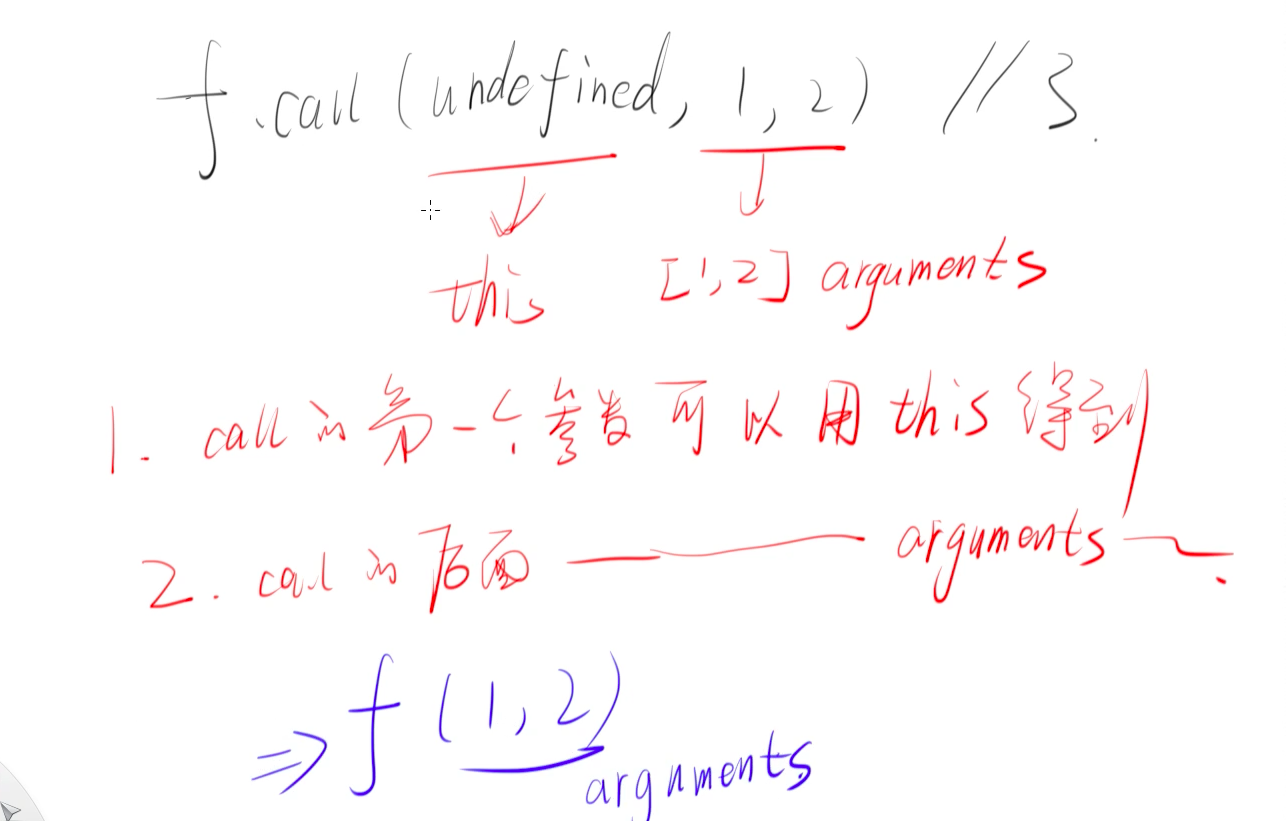 f.call(undefined, 1, 2) //3.
this [1,2] arguments
1. call的第一个参数可以用this得到
2. call的后面——arguments~.
⇒ f(1,2)
arguments